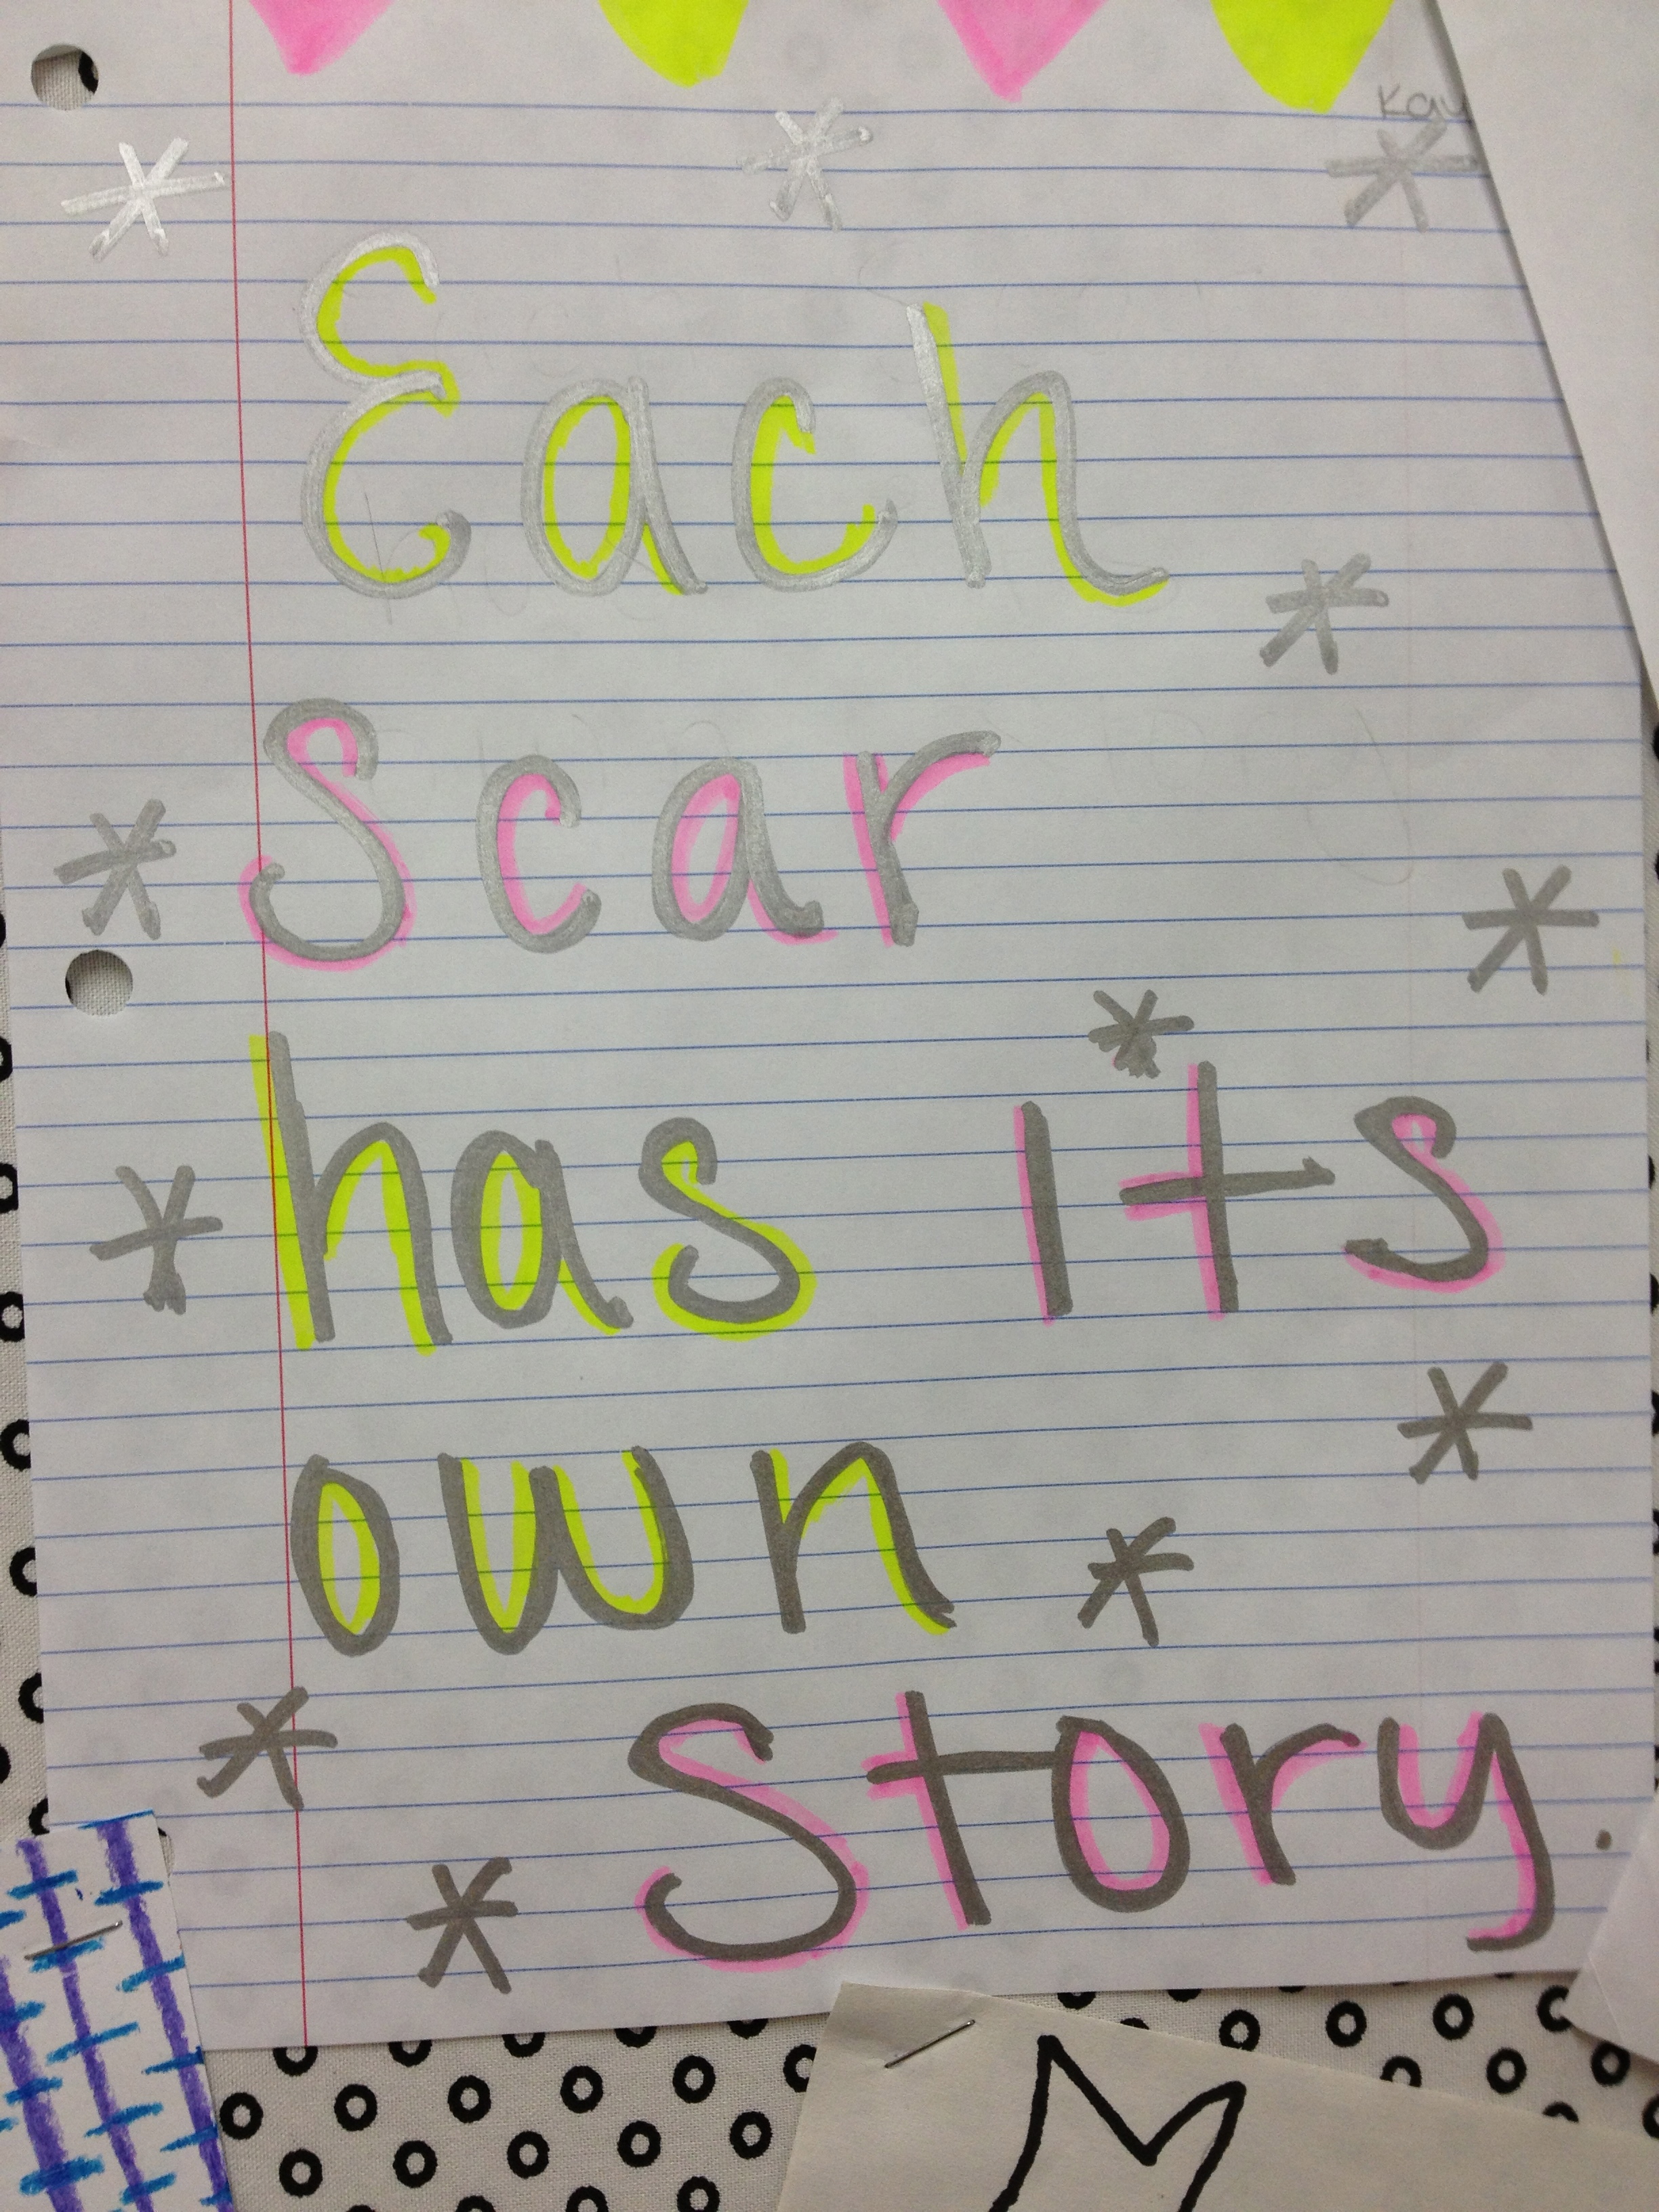 Kay
Each
Scar
has its
own
Story.